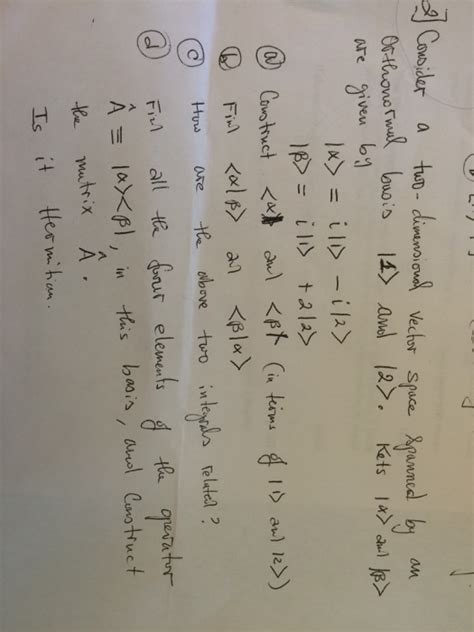 2] Consider a two-dimensional vector space spanned by an
orthonormal basis |1> and |2>. Kets |α> and |β>
are given by
|α> = i|1> - i|2>
|β> = i|1> + 2|2>
(a) Construct <α| and <β| (in terms of |1> and |2>)
(b) Find <α|β> and <β|α>
(c) How are the above two integrals related?
(d) Find all the four elements of the operator
Â ≡ |α><β|, in this basis, and construct
the matrix Â.
Is it Hermitian.